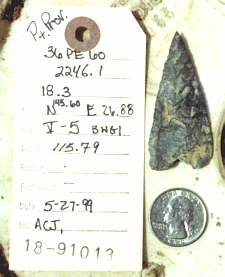 Px. Prov.
36 PE 60
2246.1
18.3
N 145.60 E 26.88
V-5 BHG1
115.79
Date 5-27-99
ACJ,
18-91013